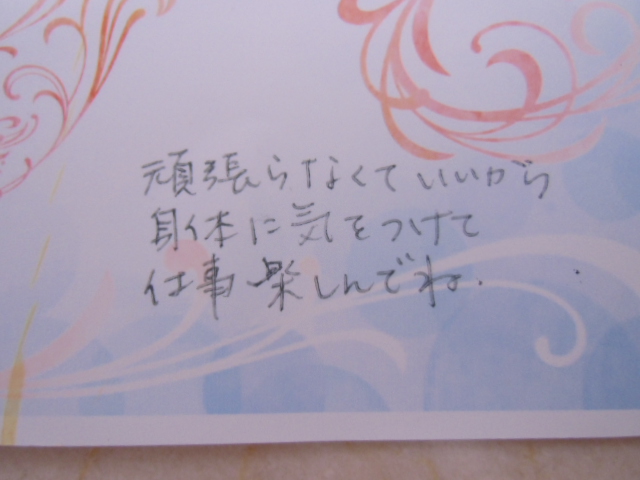 頑張らなくていいから
身体に気をつけて
仕事楽しんでね.